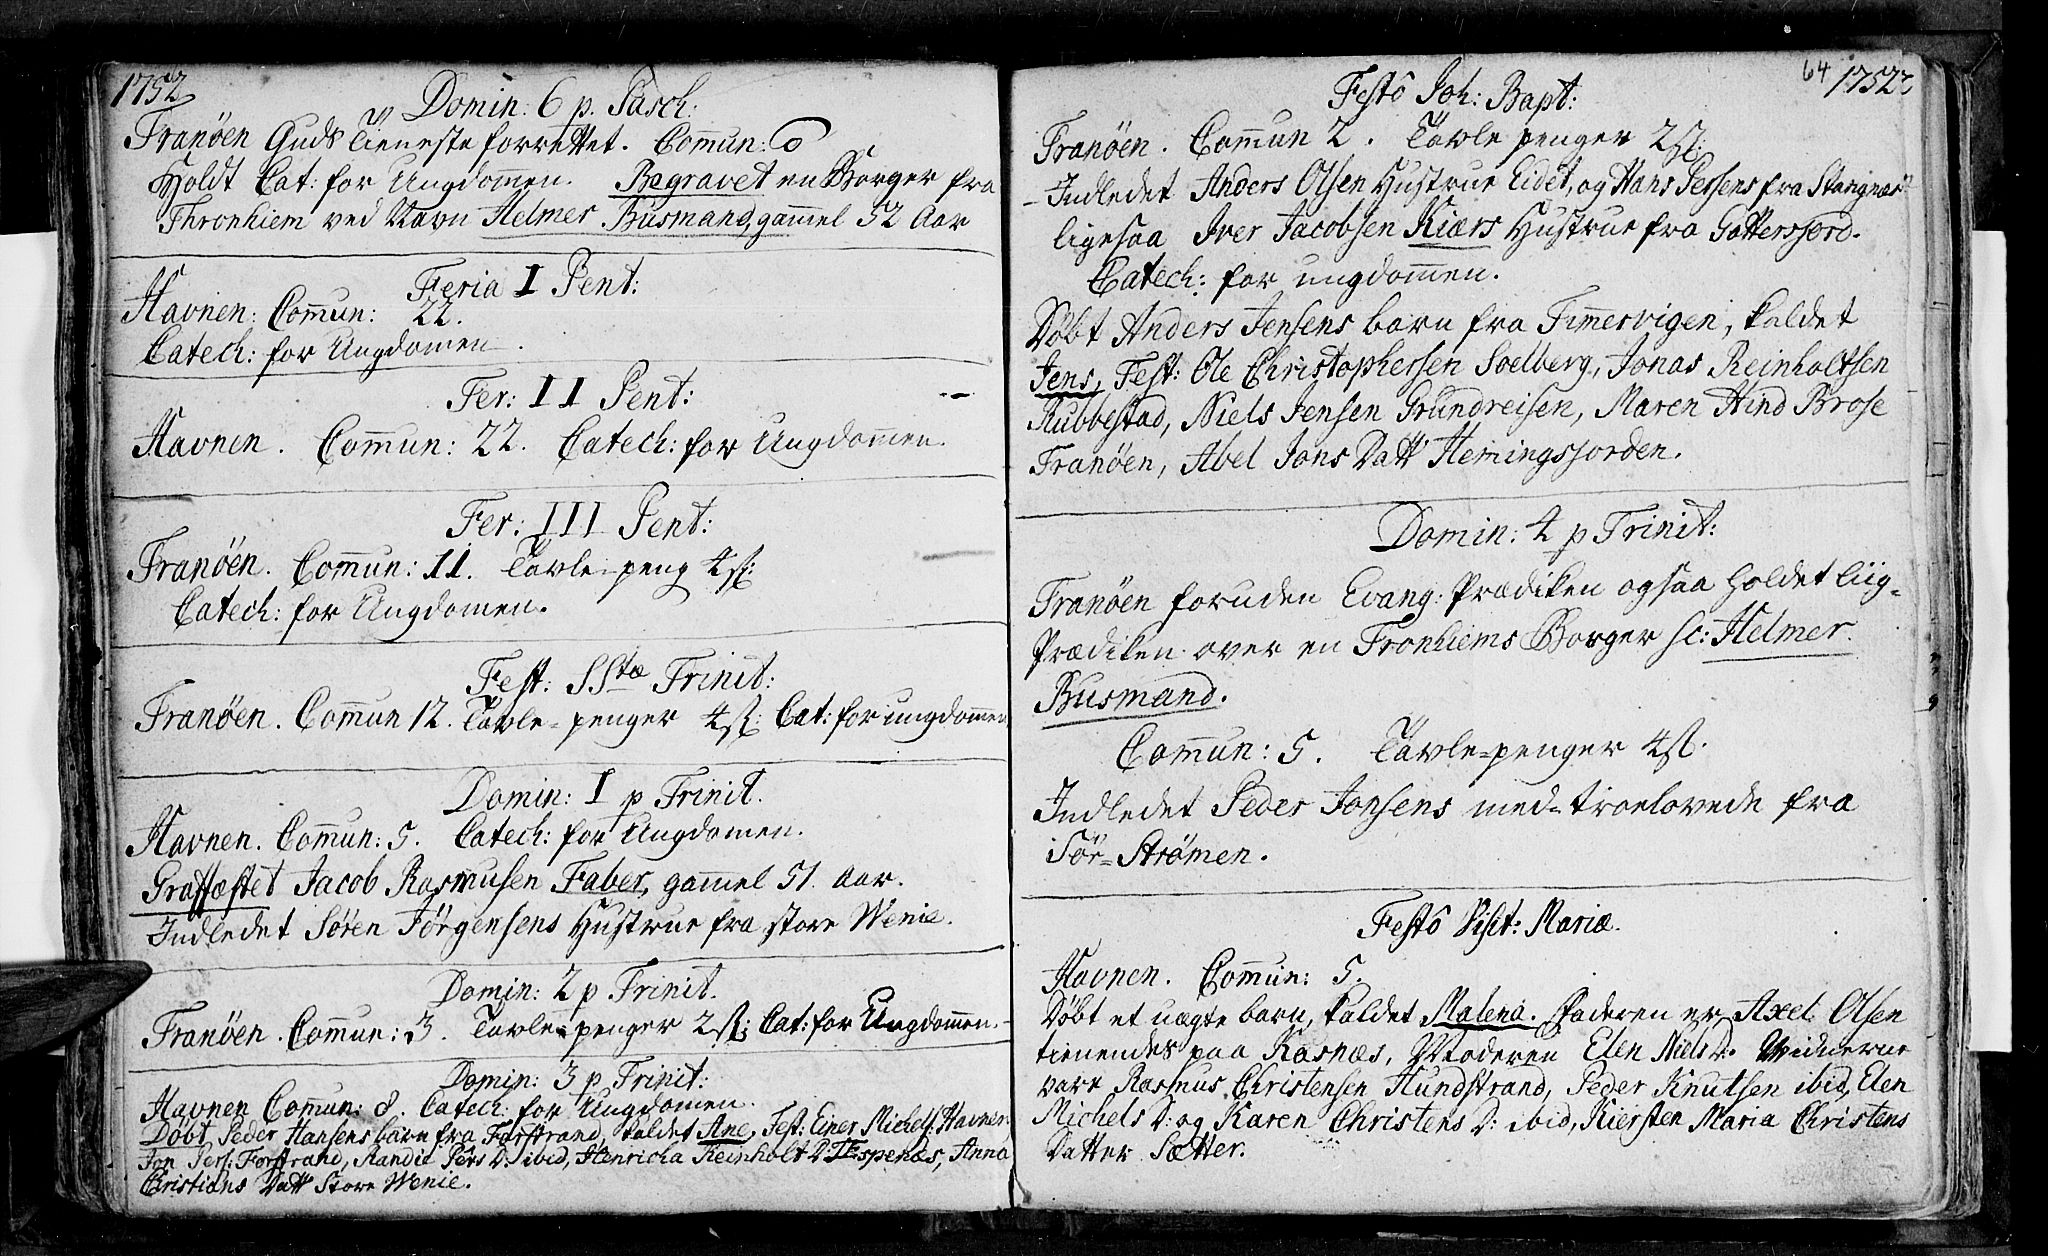 1752
Domin: 6 p. Pasch:
Tranöen Guds Tieneste forrettet. Commun: 0
Holdt Cat: for Ungdommen. Begravet en Borger fra
Thronhiem ved Navn Helmer Busmand, gammel 52 Aar
Feria I Pent:
Havnen: Commun: 22.
Catech: for Ungdomen.
Fer: II Pent:
Havnen. Commun: 22. Catech: for Ungdommen.
Fer: III Pent:
Tranöen. Commun: 11. Tavle-peng 4 sk:
Catech: for Ungdomen.
Fest: SStæ Trinit:
Tranöen. Commun 12. Tavle-penger 4 sk: Cat: for ungdommen
Domin: I p Trinit.
Havnen. Commun: 5. Catech: for Ungdomen.
Graffæstet Jacob Rasmusen Faber, gammel 51. Aar.
Indledet Sören Jörgensens Hustrue fra store Wenie.
Domin: 2 p Trinit.
Tranöen. Commun: 3. Tavle-penger 2 sk: Cat: for Ungdommen.
Domin: 3 p Trinit:
Havnen Commun: 8. Catech: for Ungdomen.
Döbt, Peder Hansens barn fra Forstrand, kaldet Ane, Test: Einer Michels: Havnen:
Jon Pers: Forstrand, Randie Pers D: ibid, Henricha Reinholt D: Espenæs, Anna
Christians Datt Store Wenie.
64 1752
Festô Joh: Bapt:
Tranöen. Commun 2. Tavle penger 2 sk:
Indledet Anders Olsen Hustrue Eidet, og Hans Persens fra Stangnæs
ligesaa Iver Jacobsen Kiærs Hustrue fra Gottersfjord.
Catech: for ungdommen.
Döbt Anders Jensens barn fra Timmervigen, kaldet
Jens, Test: Ole Christophersen Soelberg, Jonas Reinholtsen
Rubbestad, Niels Jensen Grundreisen, Maren Hind Brose
Tranöen, Abel Jons Datt Hemingsjorden.
Domin: 4 p Trinit:
Tranöen foruden Evang: Prædiken ogsaa holdet liig-
Prædiken over en Tronhiems Borger sc: Helmer
Busmand.
Commun: 5. Tavle-penger 4 sk.
Indledet Peder Jonsens med-troelovede fra
Sör-Strömen.
Festô Visit: Mariæ.
Havnen. Commun: 5.
Döbt et uægte barn, kaldet Malena. Faderen er Axel Olsen
tienendes paa Kasnæs, Moderen Elen Niels D. Widnerne
vare Rasmus Christensen Hundstrand, Peder Knutsen ibid, Elen
Michels D: og Karen Christens D: ibid, Kiersten Maria Christens
Datter Sætter.